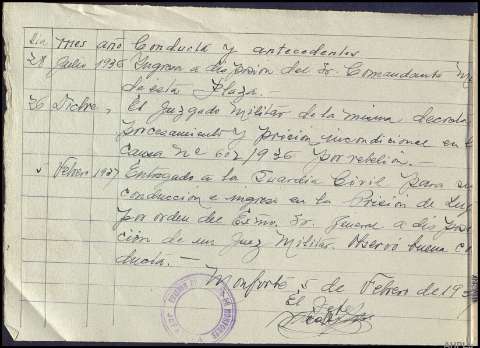 Dia mes año Conducta y antecedentes
28 Julio 1936 Ingresa a disposición del Sr. Comandante M
de esta Plaza.
26 Dicbre, El Juzgado Militar de la misma decreta
procesamiento y prisión incondicional en l
causa nº 607/1936 por rebelión.
5 Febrero 1937 Entregado a la Guardia Civil para su
conducción e ingreso en la Prisión de Lug
por orden del Exmo. Sr. General a dispos
ción de un Juez Militar. Observó buena co
ducta.-
Monforte 5 de Febrero de 193
El Jefe